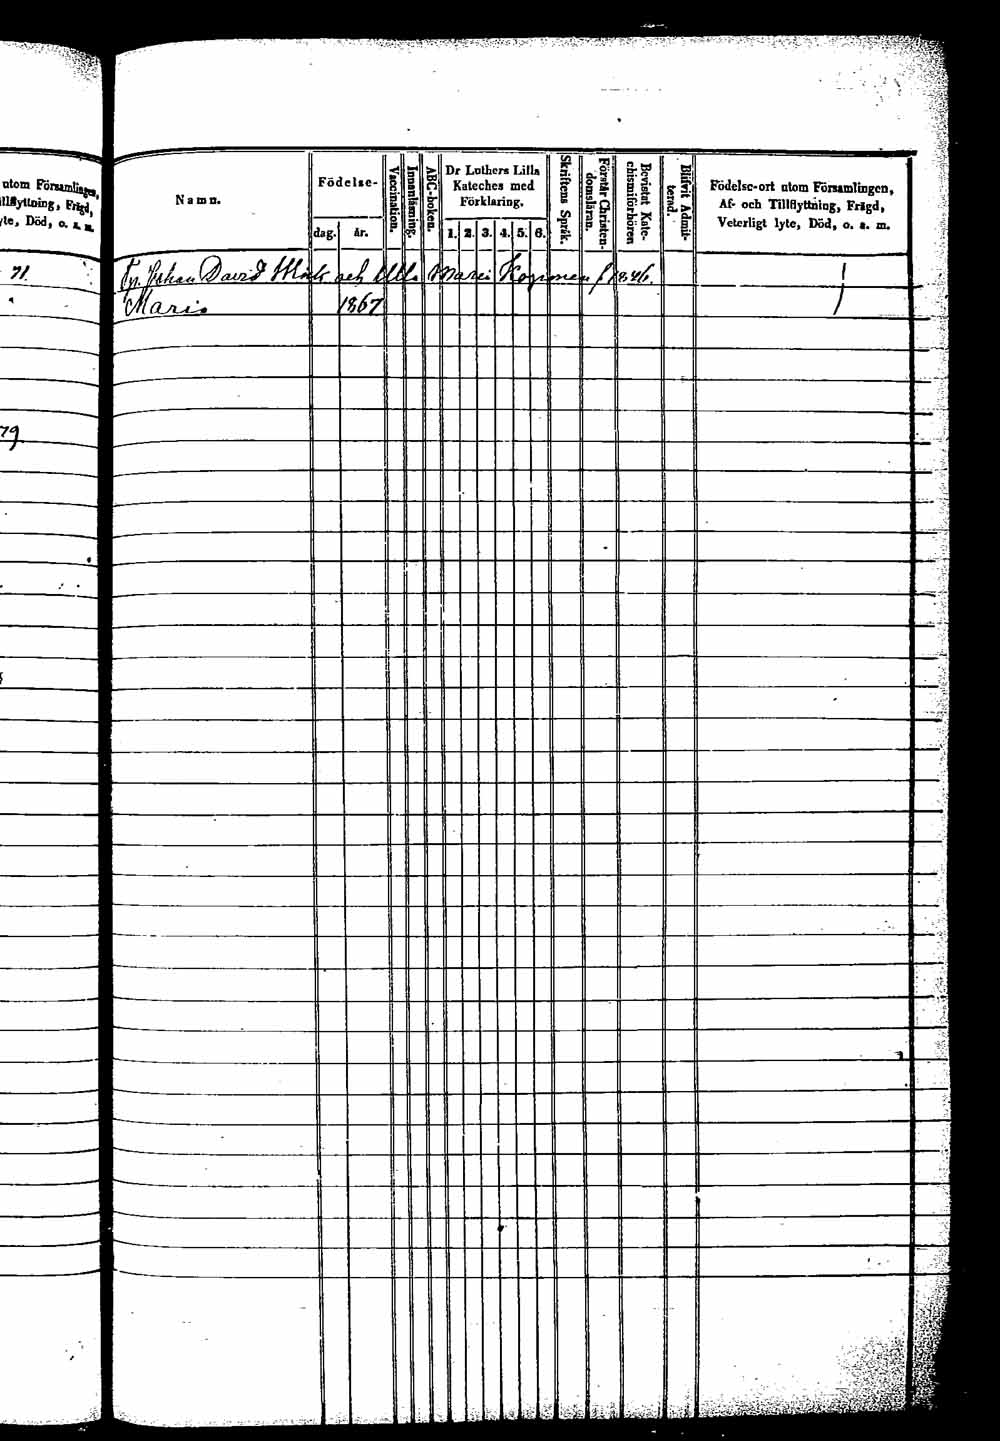 utom Församlingen,
illflyttning, Frägd,
yte, Död, o. s. m.
71
79
Namn.
Födelse-
dag.
år.
Vaccination.
Innanläsning.
ABC-boken.
Dr Luthers Lilla
Kateches med
Förklaring.
1. 2. 3. 4. 5. 6.
Skriftens Språk.
Förstår Christen-
domsläran.
Bevistat Kate-
chismiförhören
Blifvit Admit-
terad.
Födelse-ort utom Församlingen,
Af- och Tillflyttning, Frägd,
Veterligt lyte, Död, o. s. m.
Johan David och Ulla Maria 1846.
Maria 1867